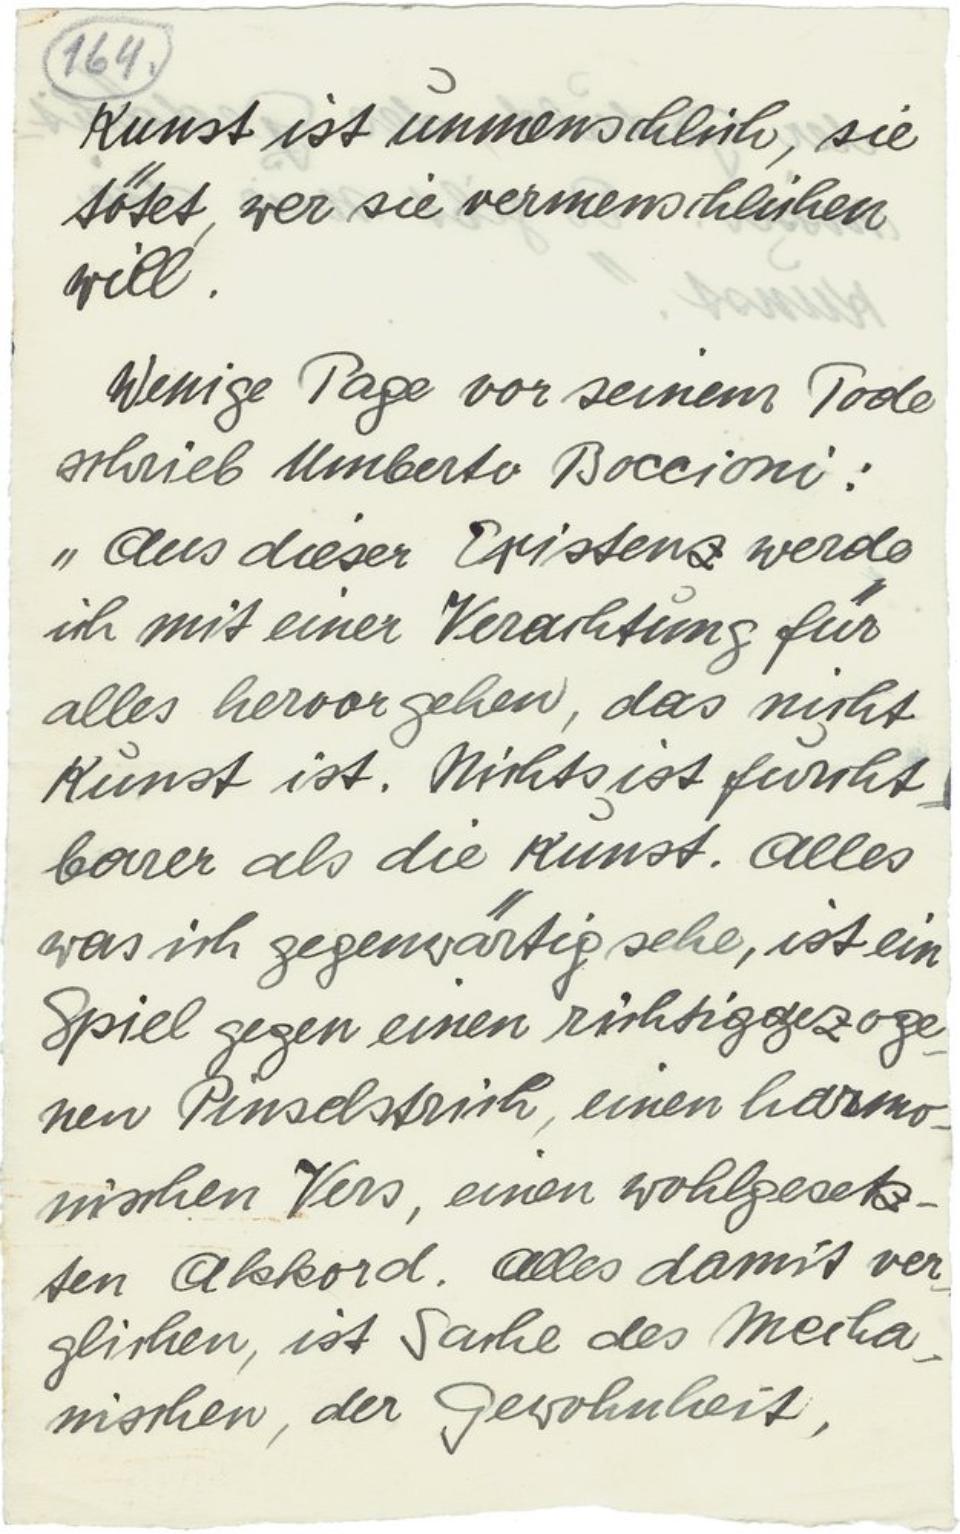 164.
Kunst ist unmenschlich, sie
tötet, wer sie vermenschlichen
will.
Wenige Tage vor seinem Tode
schrieb Umberto Boccioni:
„Aus dieser Existenz werde
ich mit einer Verachtung für
alles hervorgehen, das nicht
Kunst ist. Nichts ist furcht-
barer als die Kunst. Alles
was ich gegenwärtig sehe, ist ein
Spiel gegen einen richtiggezoge-
nen Pinselstrich, einen harmo-
nischen Vers, einen wohlgesetz-
ten Akkord. Alles damit ver-
glichen, ist Sache des Mecha-
nischen, der Gewohnheit,